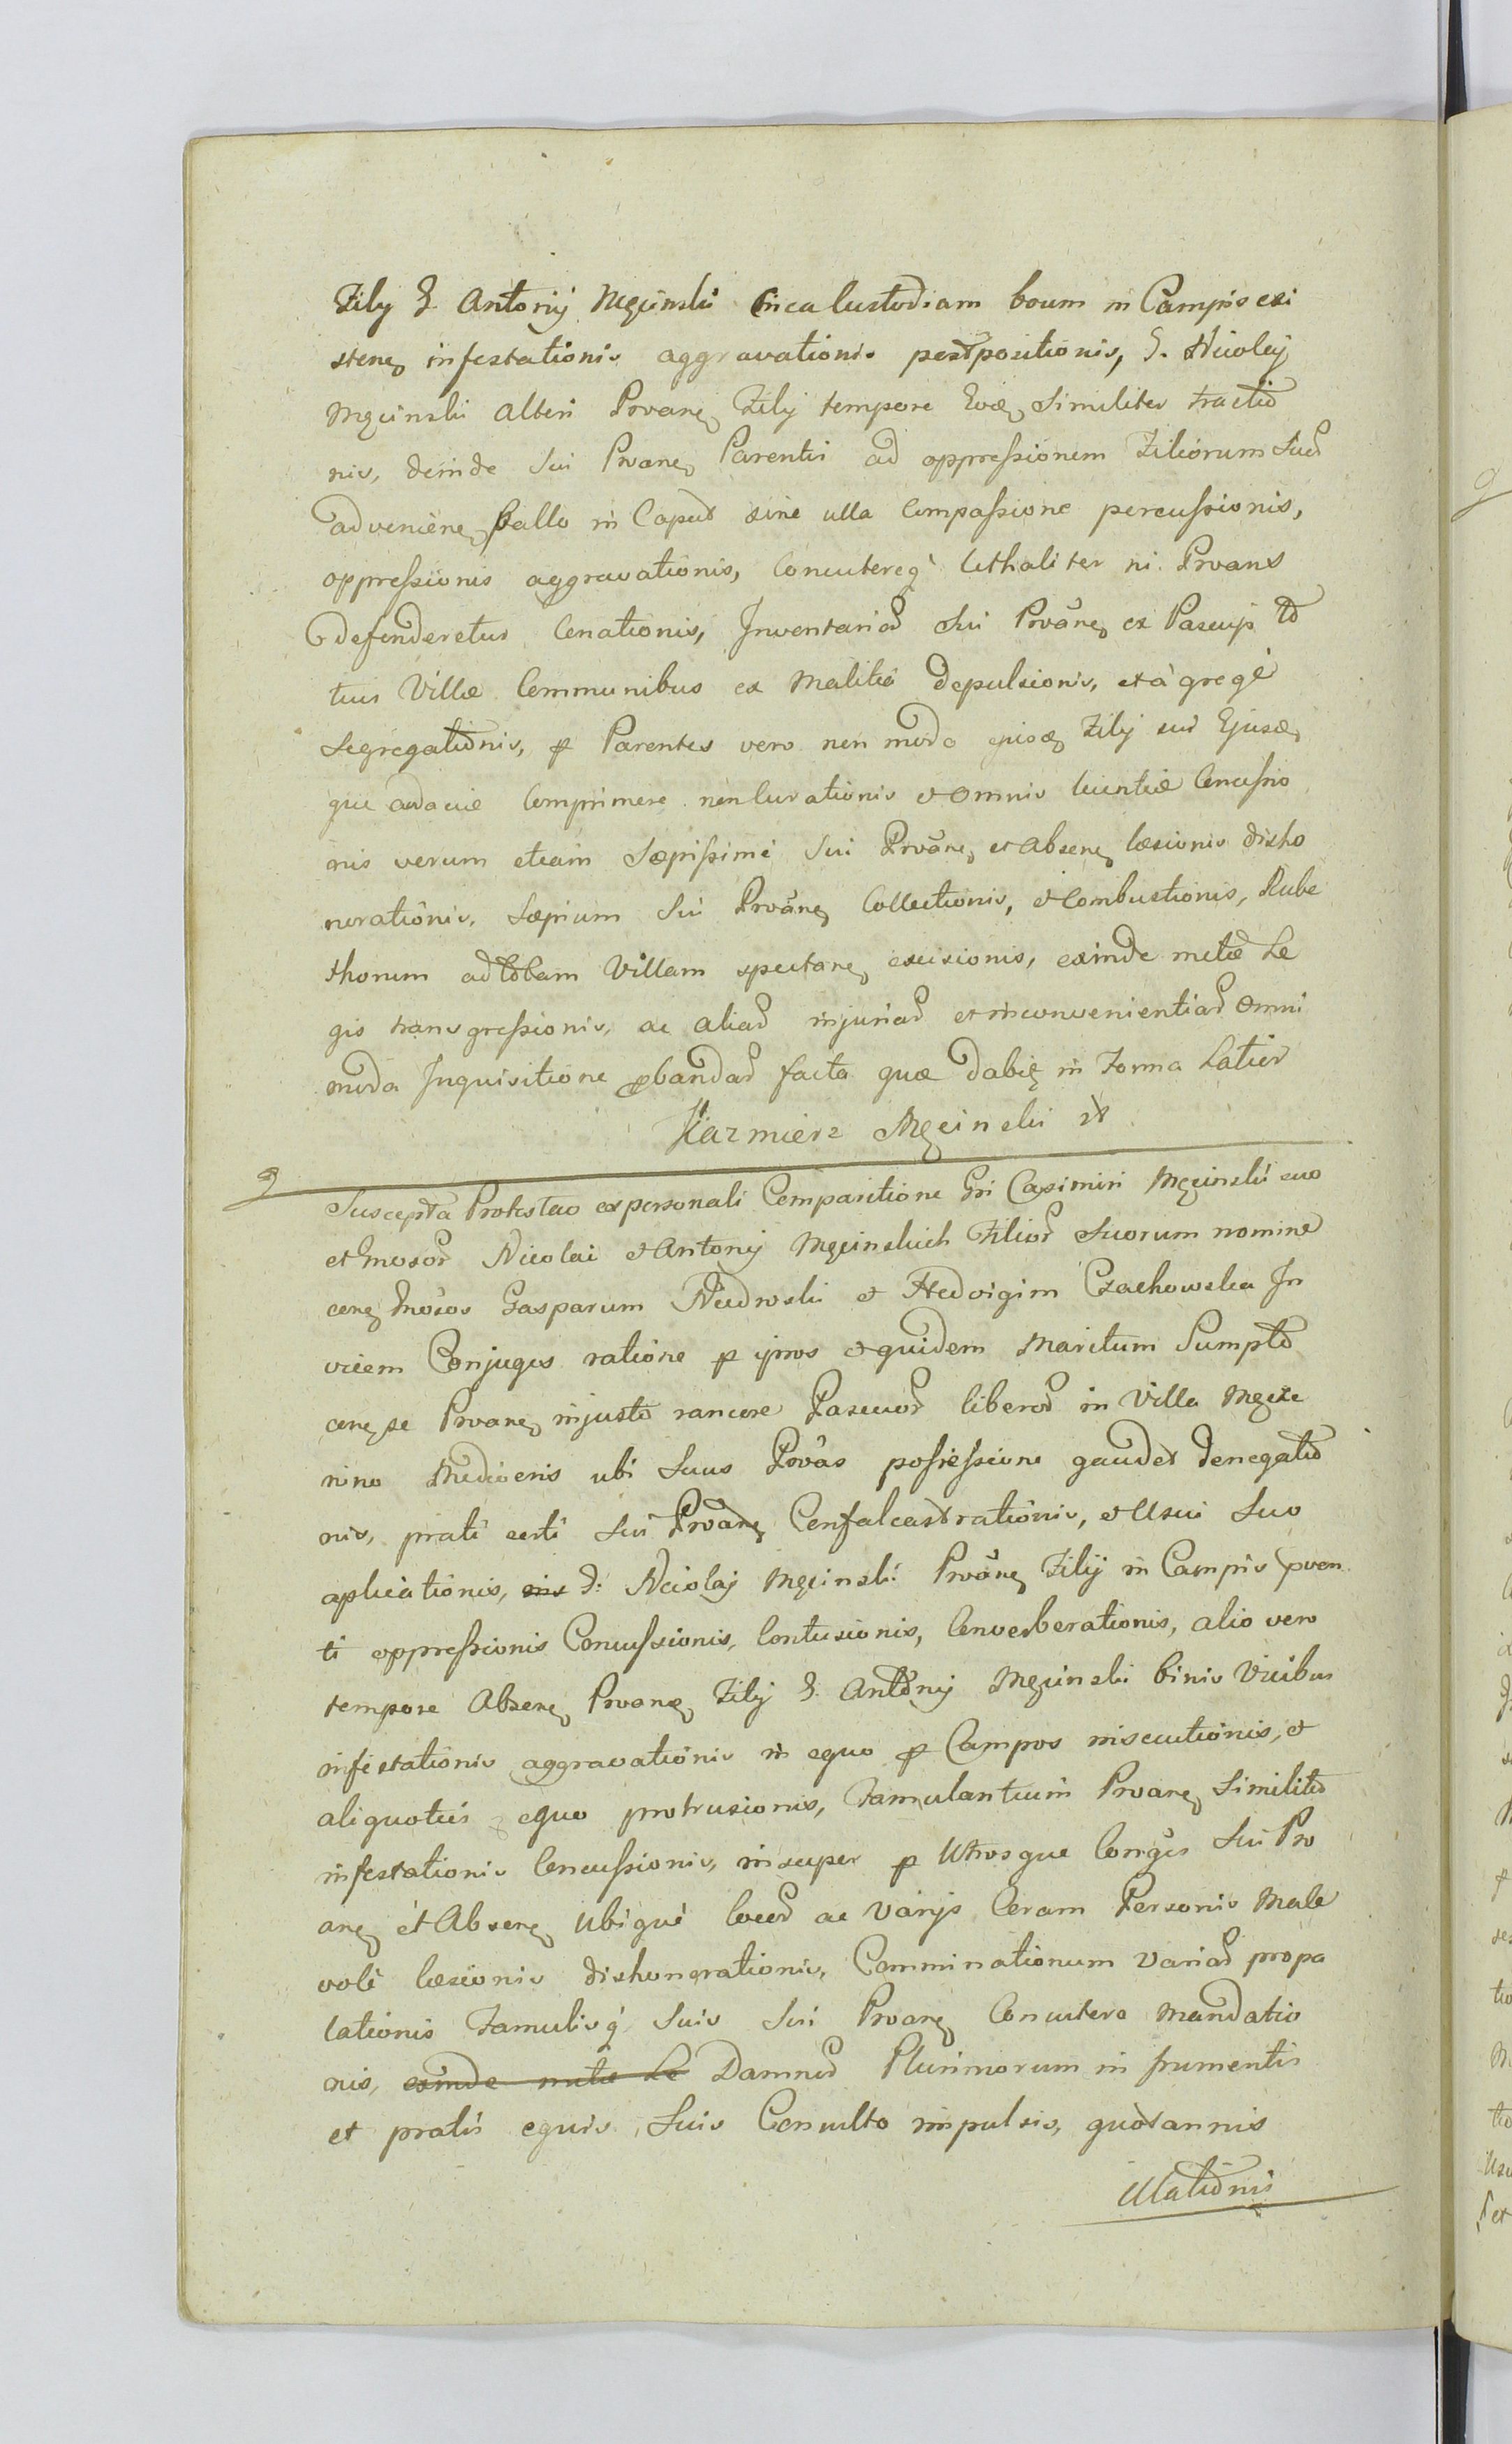 Filij G. Antonij Męcinski circa Custodiam boum in Campis exi
stenẽ infestationis aggravationis postpositionis, G. Nicolaj
Męcinski alteri Prvanẽ Filij tempore Eodẽ similiter tractio
nis, deinde sui Prvanẽ Parentis ad oppressionem Filiorum suoꝝ
advenienẽ pallo in Caput sine ulla Compassione percussionis,
oppressionis aggravationis, Concutereq́ lethaliter ni Prvans
defenderetur Conationis, Inventarioꝝ sui Prvãnẽ ex Pascuijs to
tius Villæ Communibus ex Malitia depulsionis, et à gregé
segregationis, ꝑ Parentes vero non modo Filij sui Ejusdẽ
que audaciæ Comprimere non Curationis et omnis licentiæ Concessio
nis verum etiam Sæpissimé sui Prvãnẽ et absenẽ læsionis disho
norationis, Sæpium sui Prvãnẽ Collectionis, et Combustionis, Rube
thorum ad totam Villam spectanẽ excisionis, exinde metæ Le
gis transgressionis, ac aliaꝝ injuriaꝝ et inconvenientiaꝝ Omni
moda Inquisitione ꝓbandaꝝ facta quæ dabiť in Forma Latior
Kazmierz Męcinski
Suscepta Protestaõ ex personali Comparitione Gsi Casimiri Męcinski suo
et Gnosoꝝ Nicolai et Antonij Męcinskich Filioꝝ Suorum nomine
conẽ Gnosos Gasparum et Hedvigim Czachowska In
vicem Conjuges ratione ꝑ ipsos et quidem Maritum Sumpto
conẽ se Prvanẽ injusto rancore Pascuoꝝ liberoꝝ in Villa
nino Mediocris ubi Suus Prvãs possessione gaudet denegatio
nis, prati certi sui Prvanẽ Confalcastrationis, et Usui Suo
aplicationis, G. Nicolaj Męcinski Prvãnẽ Filij in Campis pven
ti oppressionis Concussionis, Contusionis, Converberationis, alio vero
tempore Absenẽ Prvanẽ Filij G. Antonij Męcinski binis Vicibus
infestationis aggravationis in equo ꝑ Campos insecutionis, et
aliquoties equo protrusionis, Famulantium Prvanẽ Similito
infestationis Concussionis, insuper ꝑ Utrosque Conges Sui Prv
anẽ ét Absenẽ Ubiqué locoꝝ ac Varijs Coram Personis Male
volé læsionis dishonorationis, Comminationum Variaꝝ propa
lationis Famulisq́ Suis Sui Prvanẽ Concutere Mandatio
nis, exinde metæ Le Damnoꝝ Plurimorum in frumentis
et pratis equis Suis Consulto impulsis, quotannis
Illationis